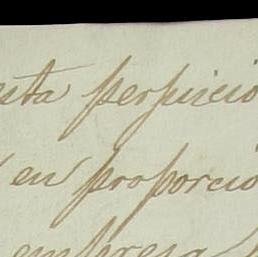 esta perjuicio
en proporcio
empresa